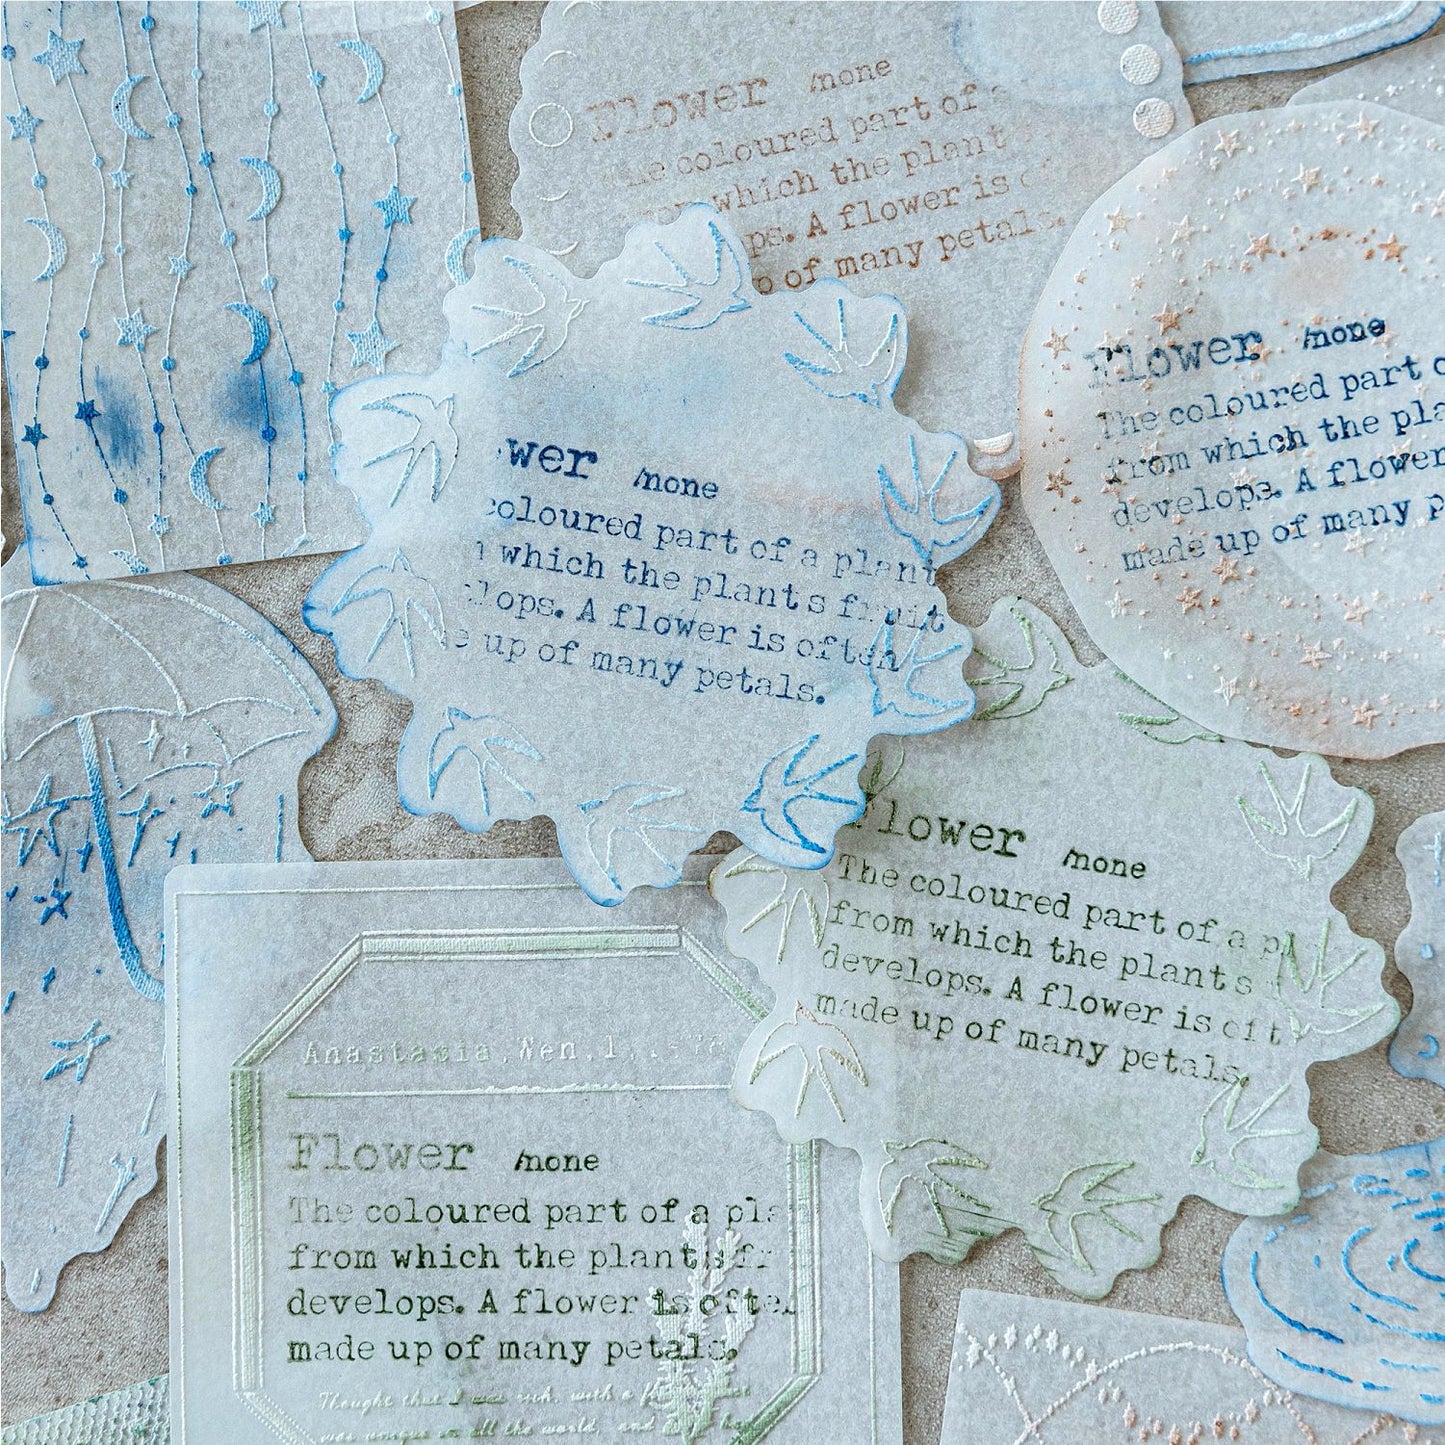 Flower /none
The coloured part of a
which the plant
ps. A flower is
p of many petals.
Flower /none
The coloured part
from which the pla
develops. A flower
made up of many p
wer /none
coloured part of a plant
which the plants fruit
lops. A flower is often
e up of many petals.
Flower /none
The coloured part of a pl
from which the plants
develops. A flower is oft
made up of many petals.
Anastasia Wen.
Flower /none
The coloured part of a pla
from which the plants fr
develops. A flower is often
made up of many petals.
Thought that I was rich, with a
was unique in all the world, and